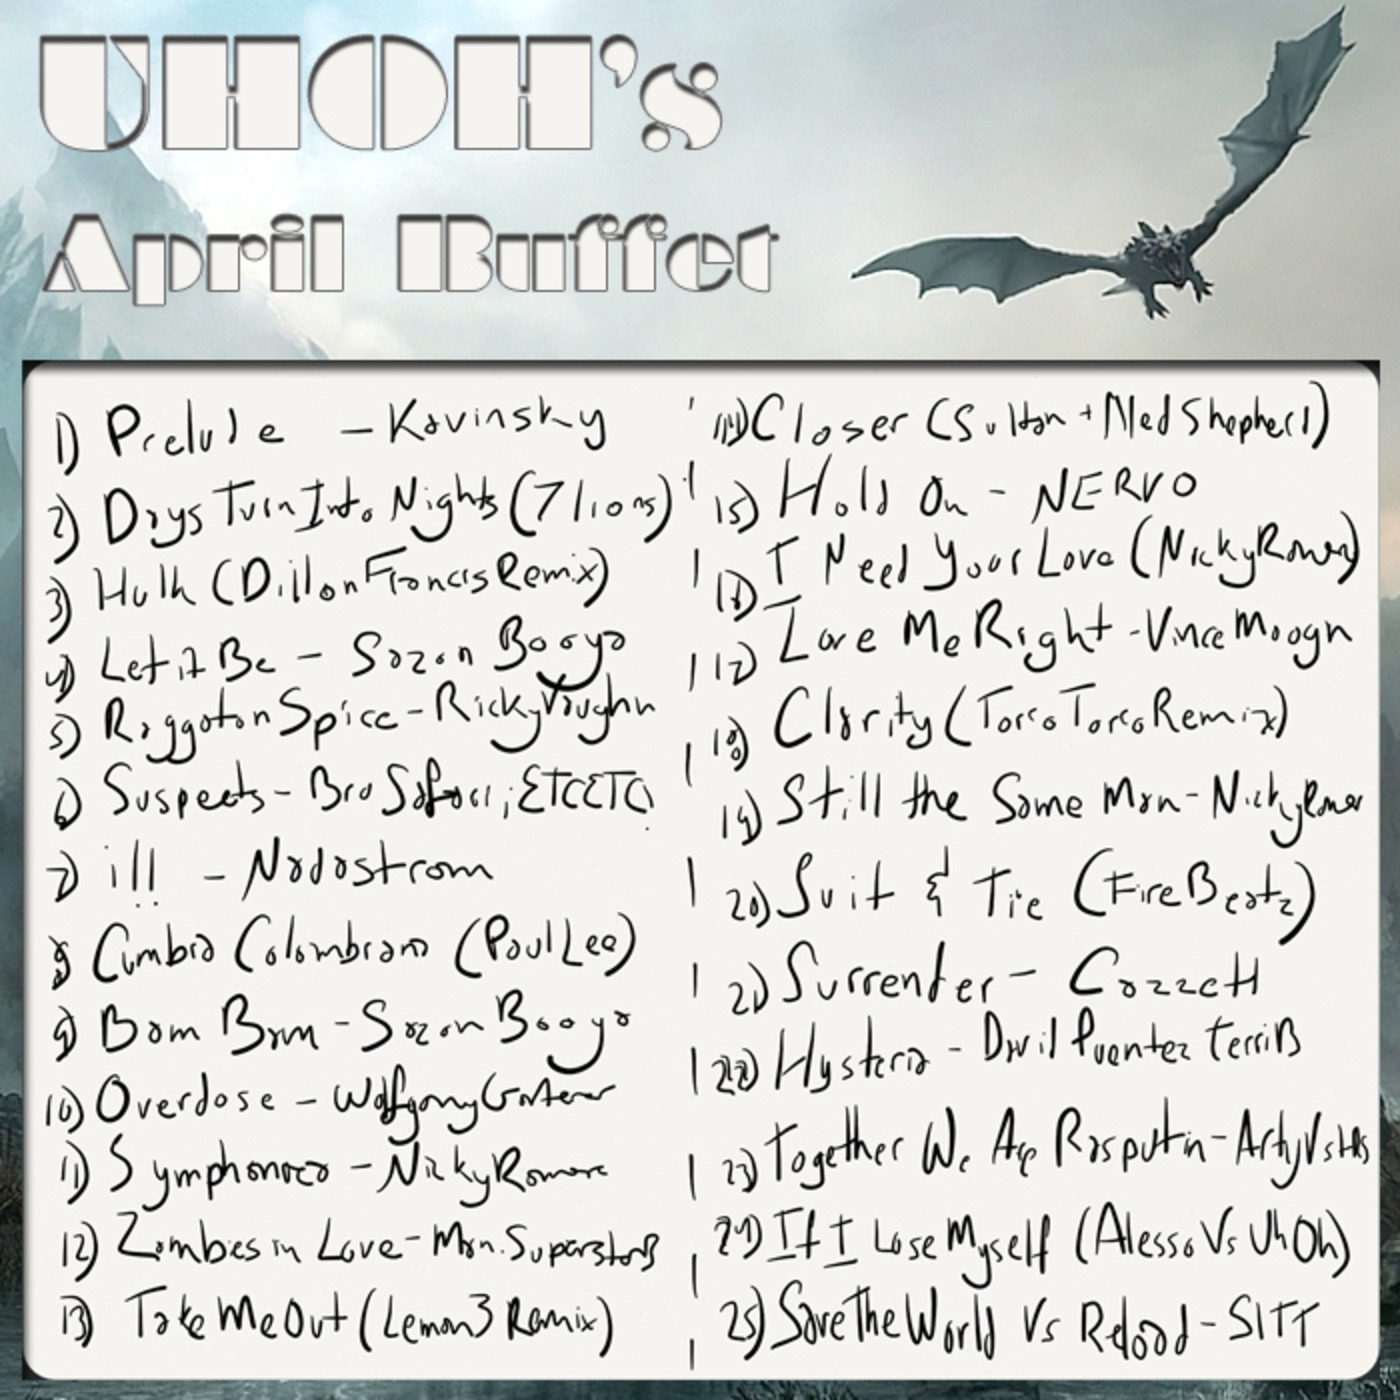 UHOH's
April Buffet
1) Prelude - Kavinsky
2) Days Turn Into Nights (7 lions)
3) Hulk (Dillon Francis Remix)
4) Let it Be - Sazon Booya
5) Raggaton Spice - Ricky Vaughn
6) Suspects - Bro Safari; ETCETC
7) ill - Nadastrom
8) Cumbia Colombiana (Paul Lee)
9) Bam Bam - Sazon Booya
10) Overdose - Wolfgang Gartner
11) Symphonica - Nicky Romero
12) Zombies in Love - Man. Superstars
13) Take Me Out (Lemon3 Remix)
14) Closer (Sultan + Ned Shepherd)
15) Hold On - NERVO
16) I Need Your Love (Nicky Romero)
17) Love Me Right - Vince Moogn
18) Clarity (Torro Torro Remix)
19) Still the Same Man - Nicky Romer
20) Suit & Tie (FireBeatz)
21) Surrender -
22) Hysteria - David Puentez TerriB
23) Together We Are Rasputin - Arty Vs
24) If I Lose Myself (Alesso Vs Uh Oh)
25) Save The World Vs Reload - SITT